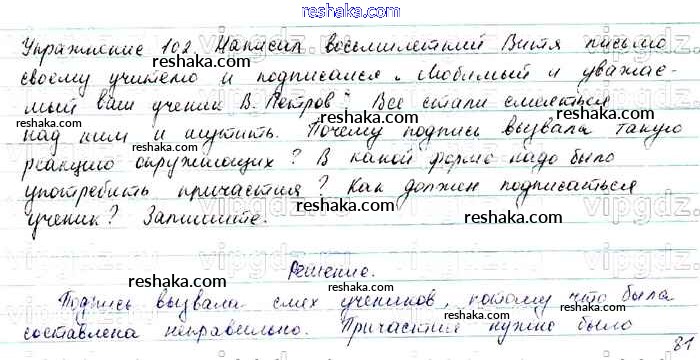 reshaka.com
Упражнение 102. Написал восьмилетний Витя письмо
своему учителю и подписался „Любимый и уважае-
мый ваш ученик В. Петров". Все стали смеяться
над ним и шутить. Почему подпись вызвала такую
реакцию окружающих? В какой форме надо было
употребить причастия? Как должен подписаться
ученик? Запишите.
Решение.
Подпись вызвала смех учеников, потому что была
составлена неправильно. Причастия нужно было
81